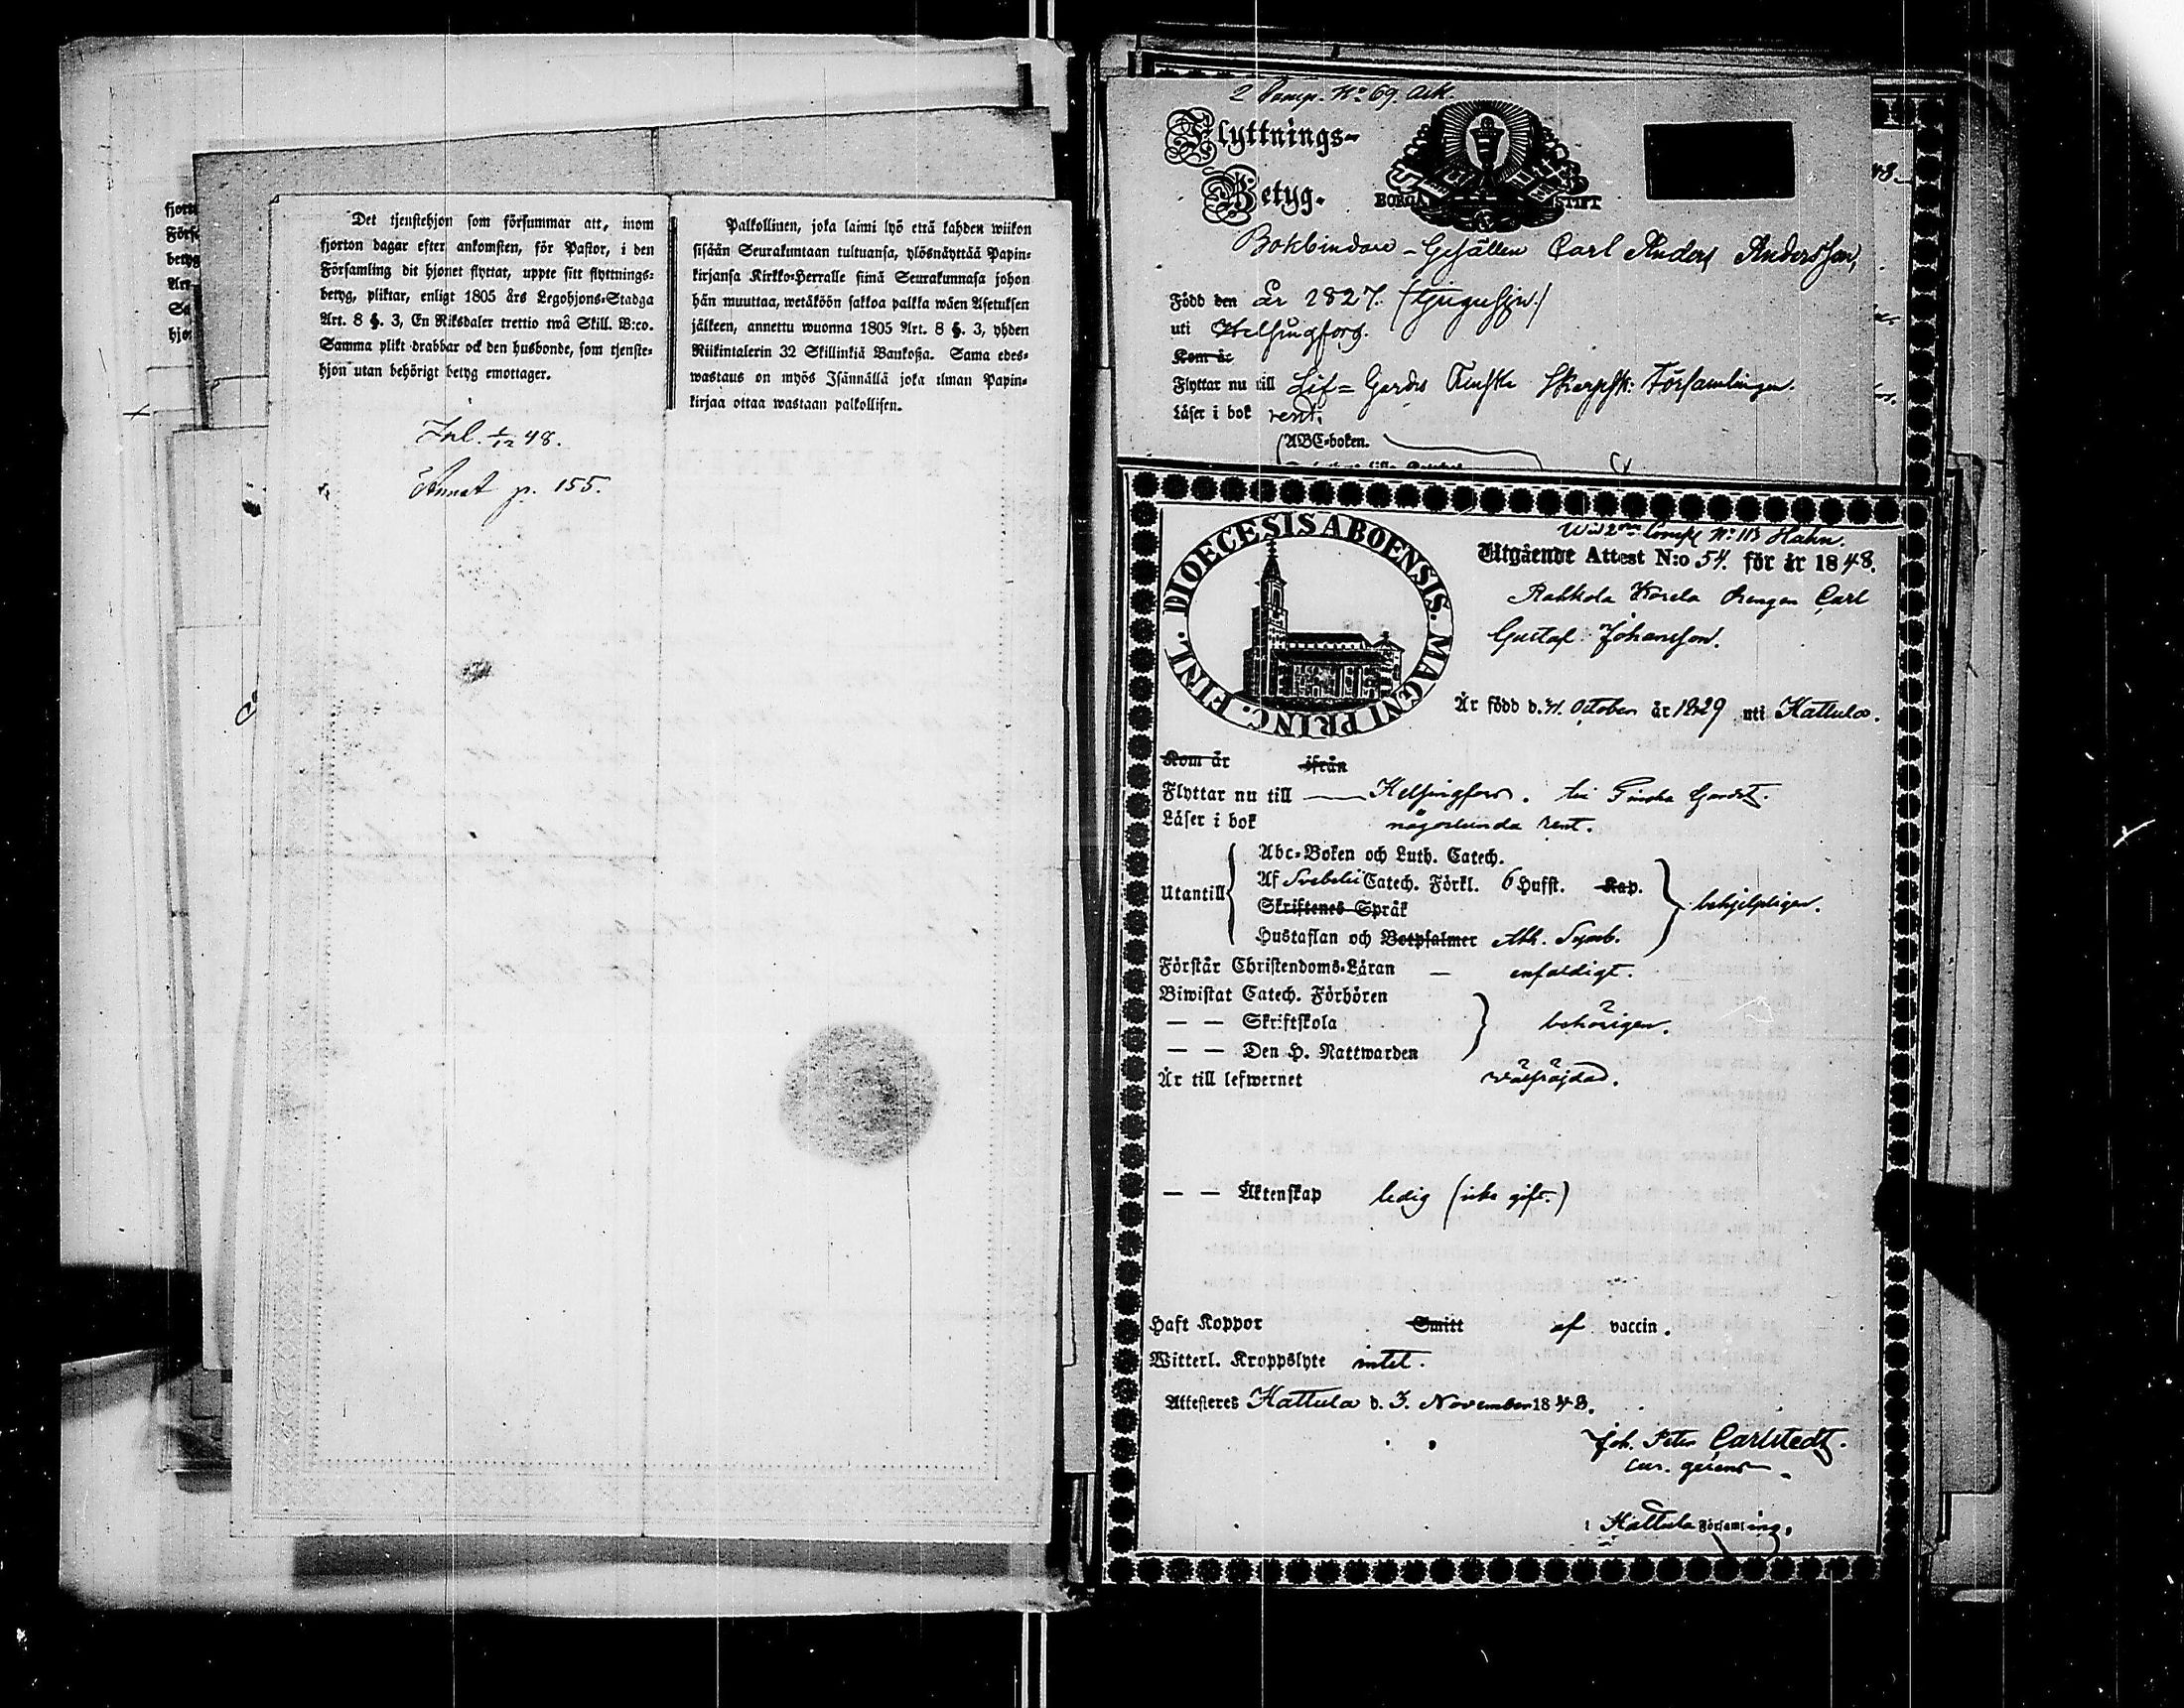 Det tjenstehjon som försummar att, inom
fjorton dagar efter ankomsten, för Pastor, i den
Församling dit hjonet flyttat, uppte sitt flyttnings-
betyg, pliktar, enligt 1805 års Legohjons-Stadga
Art. 8 §. 3, En Riksdaler trettio twå Skill. B:co.
Samma plikt drabbar ock den husbonde, som tjenste-
hjon utan behörigt betyg emottager.
Palkollinen, joka laimi lyö että kahden wiikon
sisään Seurakuntaan tultuansa, ylösnäyttää Papin-
kirjansa Kirkko-Herralle siinä Seurakunnasa johon
hän muuttaa, wetäköön sakkoa palkka wäen Asetuksen
jälkeen, annettu wuonna 1805 Art. 8 §. 3, yhden
Riikintalerin 32 Skillinkiä Bankoßa. Sama edes-
wastaus on myös Isännällä joka ilman Papin-
kirjaa ottaa wastaan palkollisen.
Inl. 1/12 48.
Annot p. 155.
2 Comp. No 69. Ask
Flyttnings-
Betyg.
BORGÅ STIFT
Bokbindare-Gesällen Carl Anders Andersson,
Född den år 1827.
uti Helsingfors.
Kom år
Flyttar nu till Lif-Gardes Finska Skarpsk: Församlingen.
Läser i bok rent.
ABC-boken.
Wid 2dra Comp No 113 Hahn.
DIOECESIS ABOENSIS. MAGNI PRINC. FINL.
Utgående Attest N:o 54. för år 1848.
Rahkola Karela drengen Carl
Gustaf Johansson.
Är född d. 31. October år 1829 uti Hattula.
Kom år ifrån
Flyttar nu till Helsingfors. till Finska Gardet.
Läser i bok någorlunda rent.
Utantill
Abc-Boken och Luth. Catech.
Af Svebelii Catech. Förkl. 6 Hufst. Kap.
Skriftenes Språk
Hustaflan och Botpsalmer Ath. Symb.
behjelpligen.
Förstår Christendoms-Läran — enfaldigt.
Biwistat Catech. Förhören
— — Skriftskola
— — Den H. Nattwarden
behörigen.
Är till lefwernet välfräjdad.
— — Äktenskap ledig (icke gift.)
Haft Koppor Smitt af vaccin.
Witterl. Kroppslyte intet.
Attesteres Hattula d. 3. November 1848.
Joh. Peter Carlstedt.
cur. gerens
i Hattula Församling.